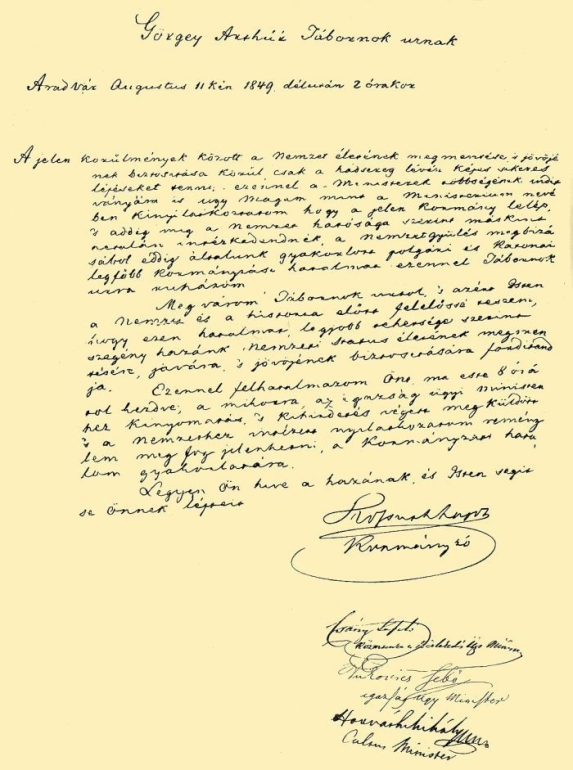 Görgey Arthúr Tábornok urnak
Aradvár Augustus 11kén 1849. délután 2 órakor
A jelen körülmények között a Nemzet életének megmentése, 's jövőjé
nek biztosítása körül csak a hadsereg lévén képes sikeres
lépéseket tenni; ezennel a Ministerek többségének indít
ványára is ugy Magam mint a Ministerium nevé
ben kinyilatkoztatom hogy a jelen Kormány lelép,
's addig míg a nemzet hatósága szerint másként
netalán intézkedendnék, a Nemzetgyűlés megbizá
sából eddig általunk gyakorlott polgári és Katonai
legfőbb Kormányzási hatalmat ezennel Tábornok
urra ruházom
Meg várom Tábornok urtól, 's azért Isten
a Nemzet és a historia előtt felelőssé teszem,
hogy ezen hatalmat, legjobb tehetsége szerint
szegény hazánk Nemzeti status életének megmen
tésére, javára, 's jövőjének biztosítására fordítand
ja.
Ezennel felhatalmazom Önt, ma este 8 órá
tól kezdve, a mikorra az igazság ügyi Minister
hez kinyomatás, 's kihirdetés végett megküldött
's a Nemzethez intézett nyilatkozatom remény
lem meg fog jelenhetni, a Kormányzati hata
lom gyakorlatára.
Legyen Ön híve a hazának, és Isten segít
se Önnek lépteit
Kossuth Lajos
Kormányzó
Csány László
Közmunka s Közlekedési Ügy Minister
Vukovics Sebő
igazság ügy Minister
Horváth Mihály
Cultus Minister